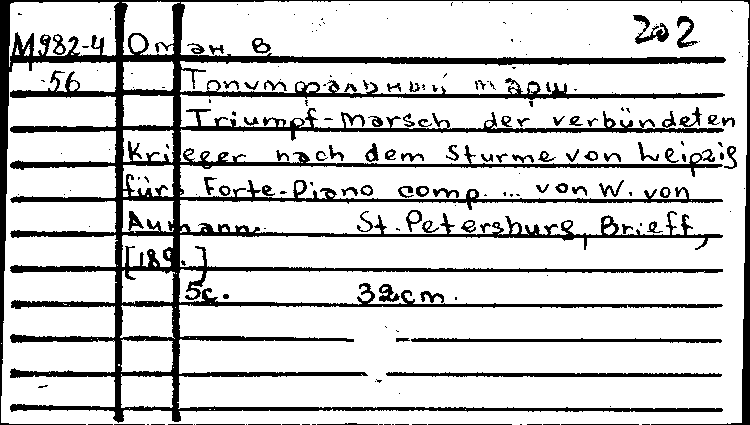 202
М982-4 Оман, В
56 Триумфальный марш.
Triumpf-Marsch der verbündeten
Krieger nach dem Sturme von Leipzig
fürs Forte-Piano comp. ... von W. von
Aumann. St. Petersburg, Brieff,
[18 . ]
5с. 32cm.